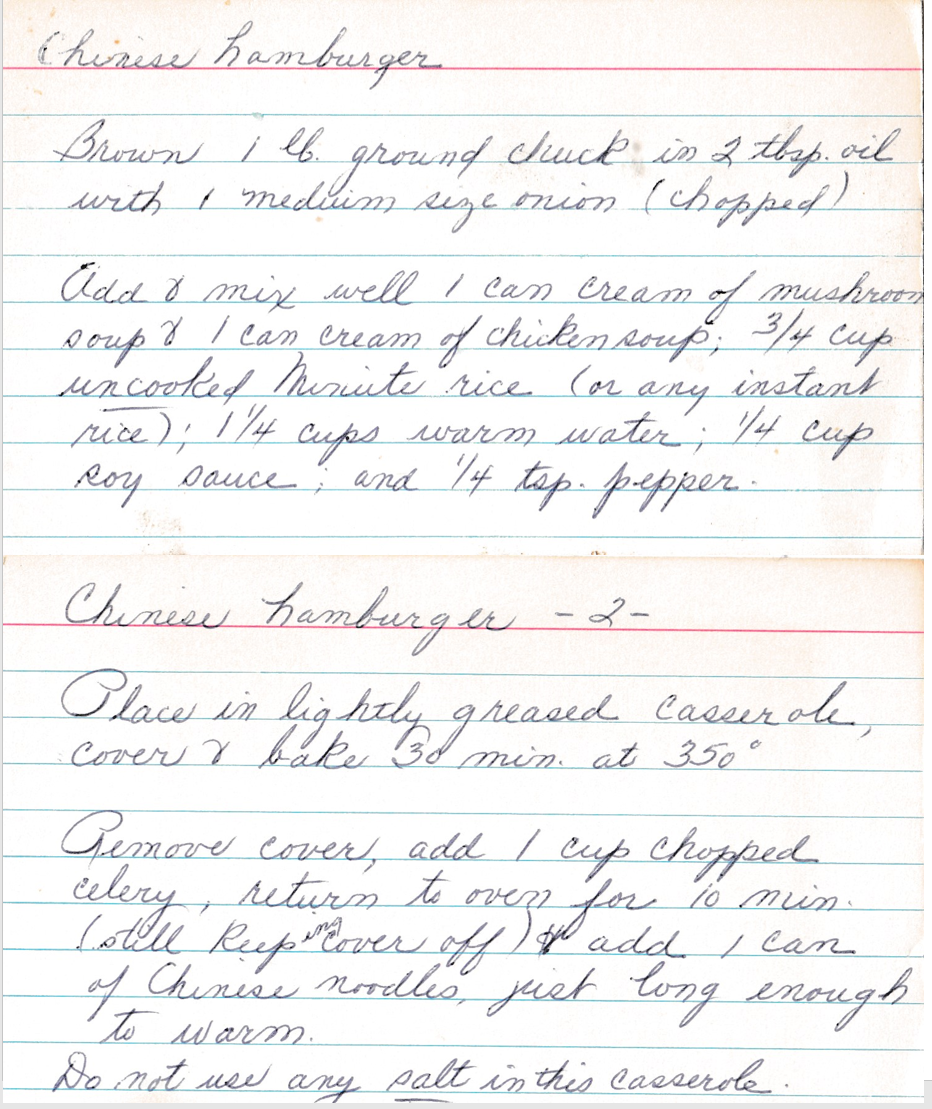 Chinese hamburger
Brown 1 lb. ground chuck in 2 tbsp. oil
with 1 medium size onion (chopped)
Add & mix well 1 can cream of mushroom
soup & 1 can cream of chicken soup; 3/4 cup
uncooked Minute rice (or any instant
rice); 1 1/4 cups warm water; 1/4 cup
soy sauce; and 1/4 tsp. pepper.
Chinese hamburger -2-
Place in lightly greased casserole,
cover & bake 30 min. at 350°
Remove cover, add 1 cup chopped
celery, return to oven for 10 min.
(still keeping cover off) & add 1 can
of Chinese noodles, just long enough
to warm.
Do not use any salt in this casserole.